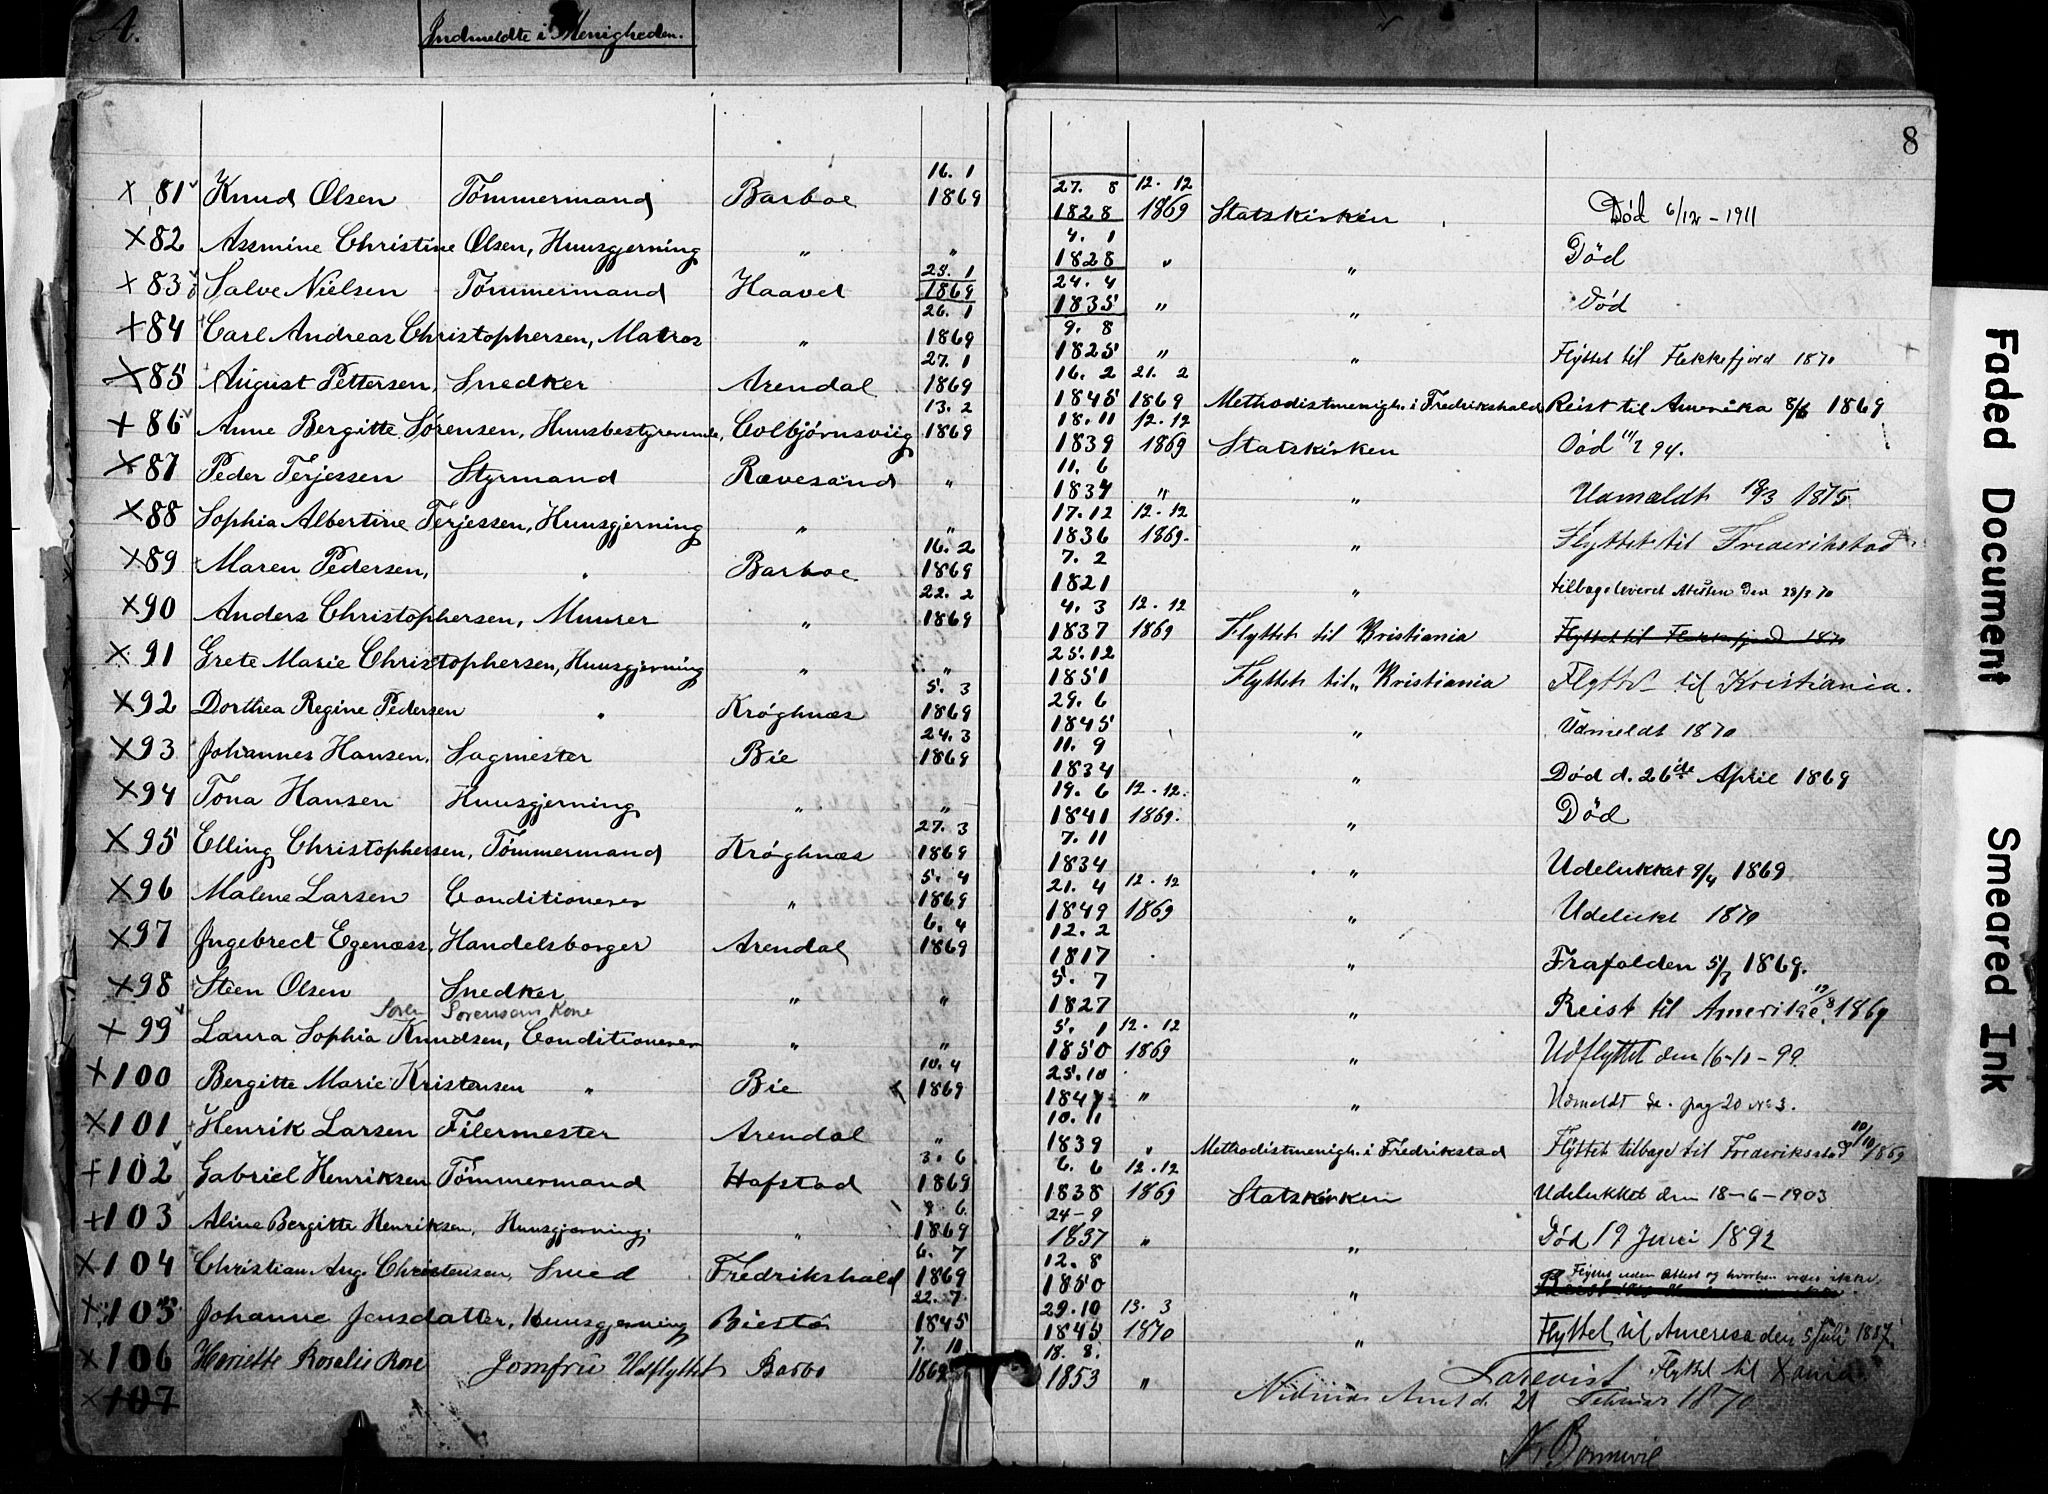 A.
Indmeldte i Menigheden.
8
× 81 Knud Olsen Tømmermand Barboe 16. 1 1869 27. 8 1828 12. 12 1869 Statskirken Død 6/12 - 1911
× 82 Assmine Christine Olsen, Huusgjerning " " 4. 1 1828 " " Død
× 83 Salve Nielsen Tømmermand Haavet 23. 1 1869 24. 4 1835 " " Død
× 84 Carl Andreas Christophersen, Matros " 26. 1 1869 9. 8 1825 " " Flyttet til Flekkefjord 1870
× 85 August Pettersen, Snedker Arendal 27. 1 1869 16. 2 1845 21. 2 1869 Methodistmenigh. i Fredrikshald Reist til Amerika 8/6 1869
+ 86 Anne Bergitte Sørensen, Huusbestyrerinde, Colbjørnsviig 13. 2 1869 18. 11 1839 12. 12 1869 Statskirken Død 11/2 94.
× 87 Peder Terjessen Styrmand Rævesand " 11. 6 1834 " " Udmældt 18/3 1875
× 88 Sophia Albertine Terjessen, Huusgjerning " " 17. 12 1836 12. 12 1869. " Flyttet til Frederikstad
× 89 Maren Pedersen, " Barboe 16. 2 1869 7. 2 1821 " tilbageleveret Atesten den 28/2 70
× 90 Anders Christophersen, Muurer " 22. 2 1869 4. 3 1837 12. 12 1869 Flyttet til Kristiania Flyttet til Flekkefjord 1870
× 91 Grete Marie Christophersen, Huusgjerning " " 25. 12 1851 Flyttet til " Kristiania Flyttet til Kristiania.
× 92 Dorthea Regine Pedersen " Krøghnæs 5. 3 1869 29. 6 1845 " Udmeldt 1870
× 93 Johannes Hansen, Sagmester Bie 24. 3 1869 11. 9 1834 " Død d. 26de April 1869
× 94 Tona Hansen Huusgjerning " " 19. 6 1841 12. 12. 1869. " Død
× 95 Elling Christophersen, Tømmermand Krøghnæs 27. 3 1869 7. 11 1834 " Udelukket 9/4 1869
× 96 Malene Larsen Conditionerer " 5. 4 1869 21. 4 1849 12. 12 1869 " Udelukt 1870
× 97 Ingebrect Egenæss, Handelsborger Arendal 6. 4 1869 12. 2 1817 " Frafalden 5/7 1869.
× 98 Steen Olsen Snedker " " 5. 7 1827 " Reist til Amerika 19/8 1869
Søren Sorensens Kone
× 99 Laura Sophia Knudsen, Conditionerer " " 5. 1 1850 12. 12 1869 " Udflyttet den 16-11-99
× 100 Bergitte Marie Kristensen " Bie 10. 4 1869 25. 10 1847 " " Udmeldt Se. pag 20 No 3.
× 101 Henrik Larsen Filermester Arendal " 10. 11 1839 " Methodistmenigh. i Fredrikstad Flyttet tilbage til Frederiksstad 10/10 1869
+ 102 Gabriel Henriksen Tømmermand Hafstad 3. 6 1869 6. 6 1838 12. 12 1869 Statskirken Udelukket den 18-6-1903
+ 103 Aline Bergitte Henriksen, Huusgjerning " 9. 6 1869 24-9 1837 " " Død 19 Juni 1892
× 104 Christian Aug. Christensen, Smed Fredrikshald 6. 7 1869 12. 8 1850 " Flyttet uden Attest og hvorhen vides ikke.
× 105 Johanne Jensdatter, Huusgjerning Biestø 22. 7. 1845 29. 10 1845 13. 3 1870 " Flyttet til Amerika den 5 Juli 1887
× 106 Henriette Rosalie Rose Jomfru Udflyttet Barbo 7. 10 1869 18. 8. 1853 " Flyttet til Xania
× 107
Nidenæs Amt d. 21 Februar 1870